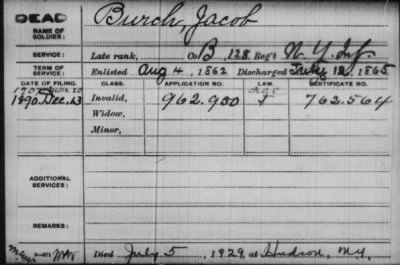 DEAD
NAME OF SOLDIER: Burch, Jacob
SERVICE: Late rank, Co B, 128 Reg't N.Y. Inf.
TERM OF SERVICE: Enlisted Aug 4, 1862 Discharged July 12, 1865
DATE OF FILING. CLASS. APPLICATION NO. LAW. CERTIFICATE NO.
1890 Dec. 23 Invalid, 962.900 762.564
Widow,
Minor,
ADDITIONAL SERVICES:
REMARKS:
Died July 5, 1929, at Hudson, N.Y.